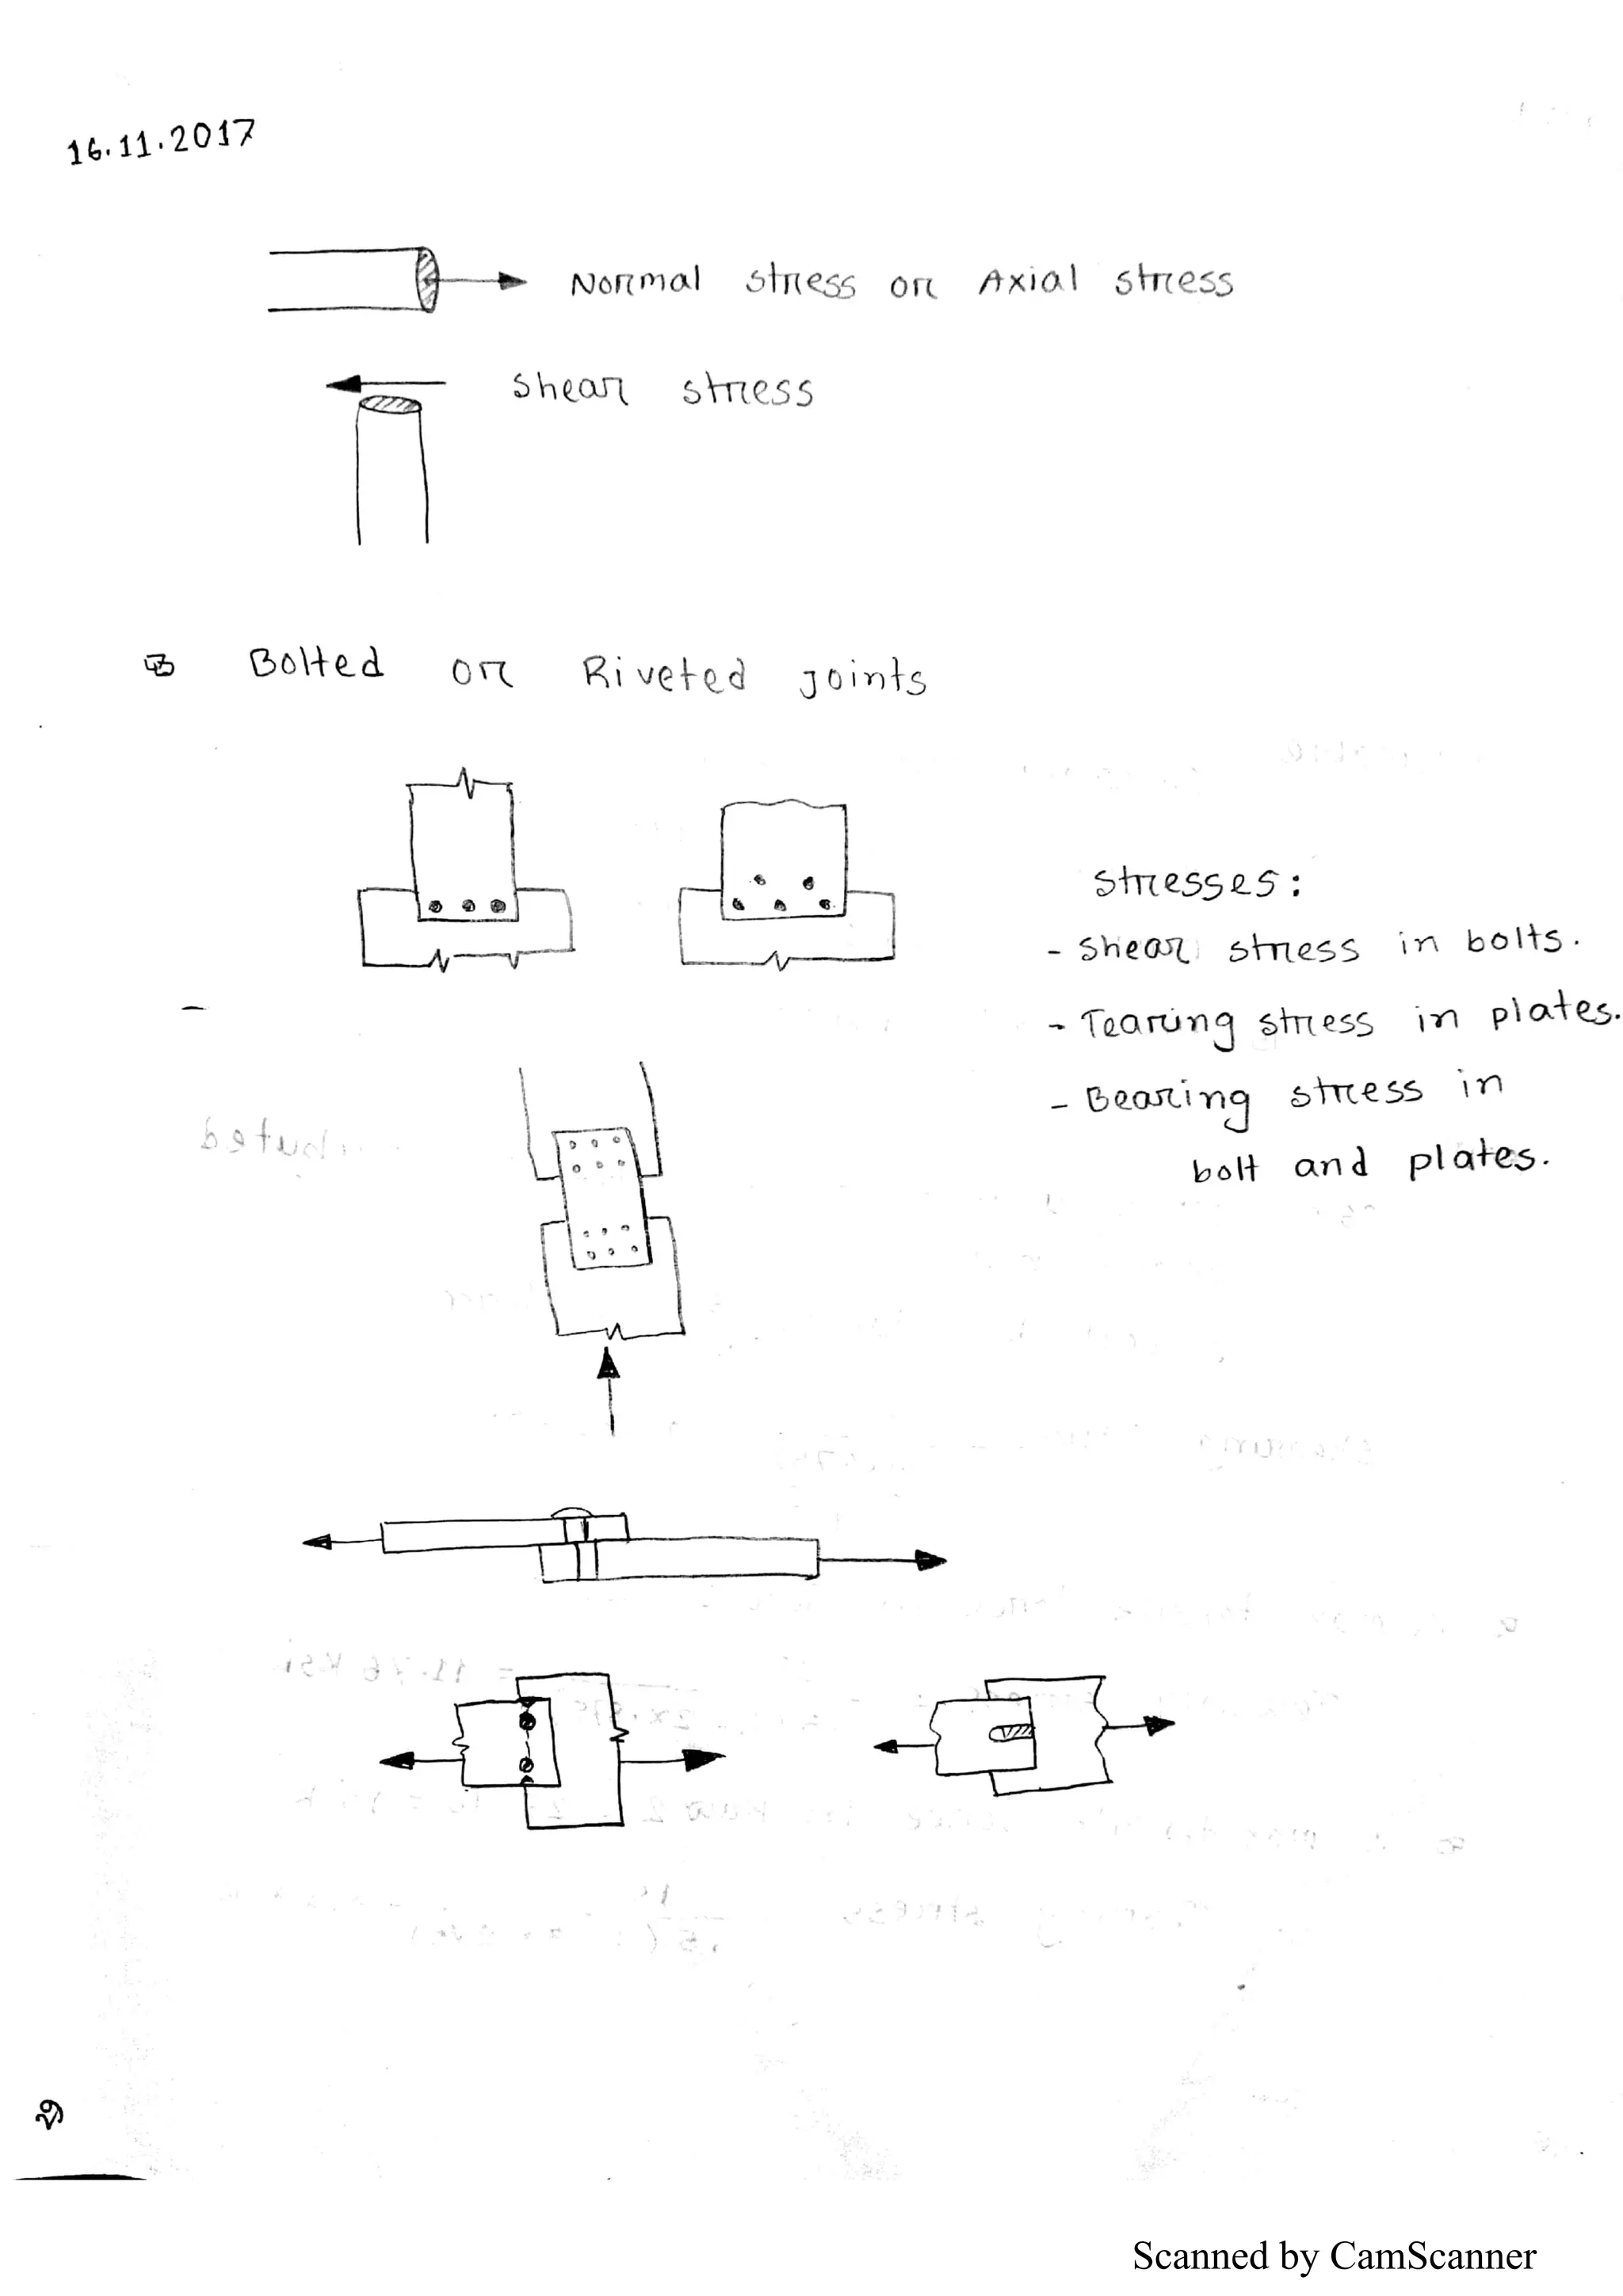 16.11.2017
Normal stress or Axial stress
Shear stress
Bolted or Riveted joints
Stresses:
- Shear stress in bolts.
- Tearing stress in plates.
- Bearing stress in
bolt and plates.
Scanned by CamScanner